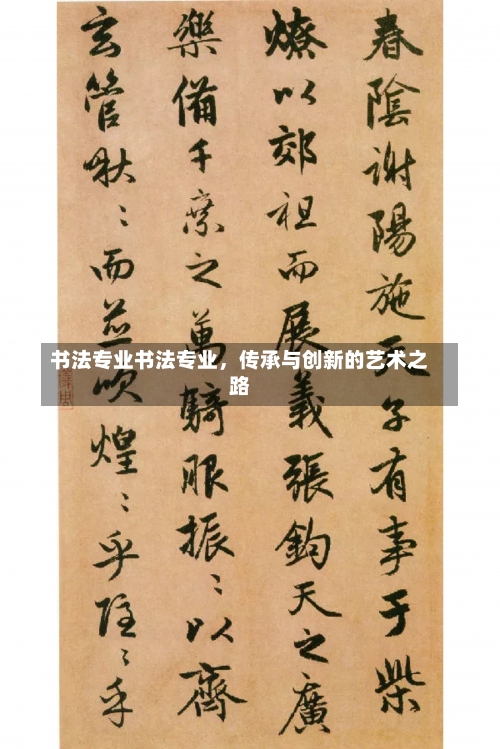 春陰謝陽施天子有事于柴
燎以郊祖而展義張鈞天之廣
樂備千乘之萬騎服振〻以齊
玄管啾〻而並吹煌〻乎隱〻乎
书法专业书法专业，传承与创新的艺术之
路